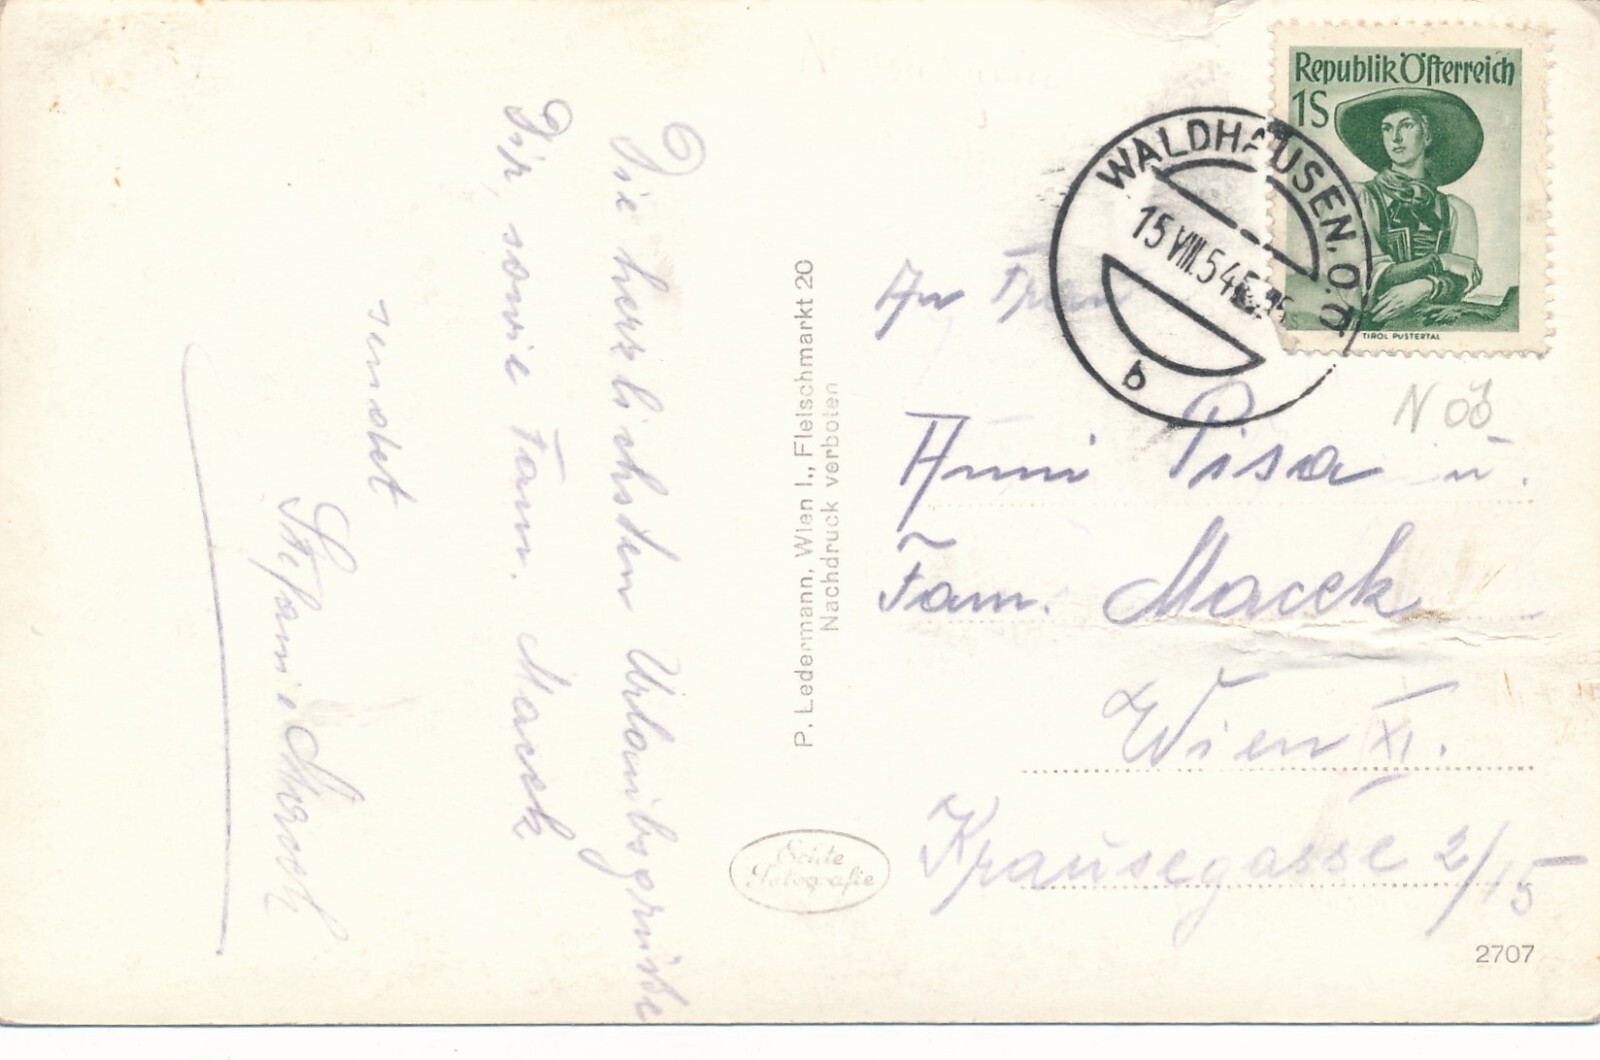 Die herzlichsten Urlaubsgrüße
Dir, sowie Fam. Macek
sendet
Stefanie Macek
P. Ledermann, Wien I., Fleischmarkt 20
Nachdruck verboten
Echte
Fotografie
Republik Österreich
1S
TIROL PUSTERTAL
WALDHAUSEN, O.Ö.
15.VIII.54
b
N OÖ
An Frau
Anni Pisa u.
Fam. Macek
Wien XI.
Krausegasse 2/15
2707